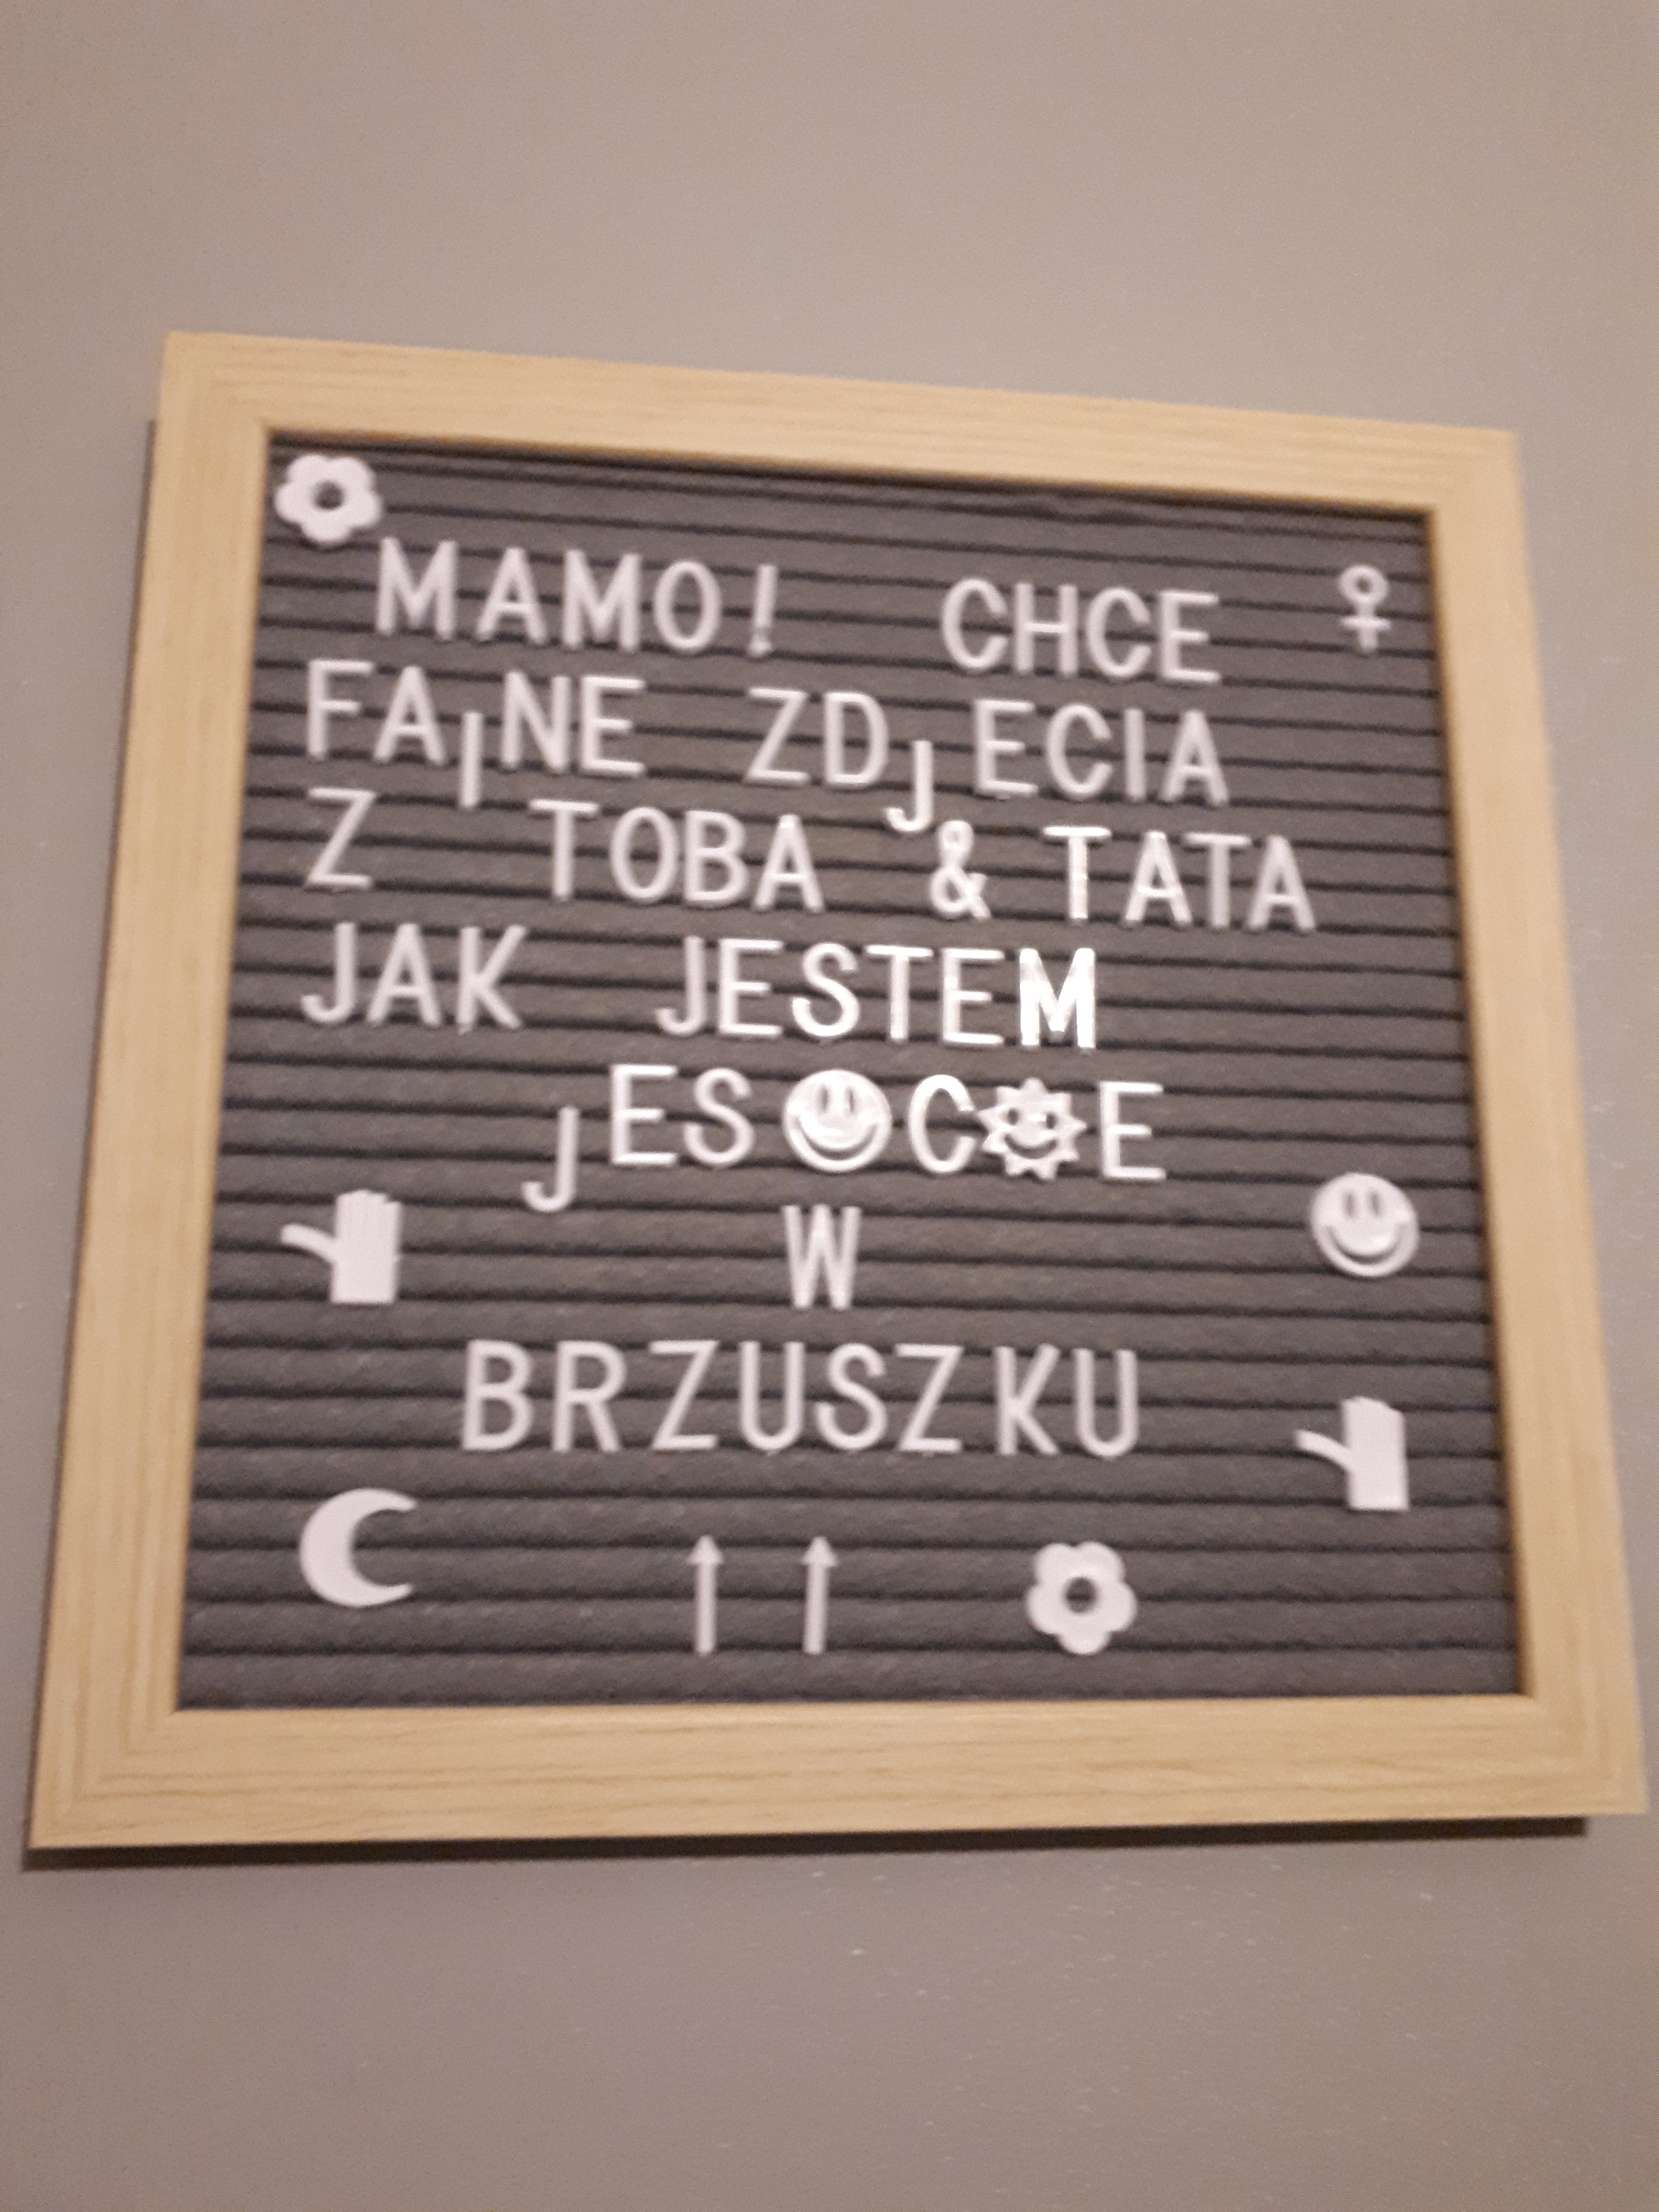 MAMO! CHCE
FAJNE ZDJECIA
Z TOBA & TATA
JAK JESTEM
JES☺C☀E
W
BRZUSZKU